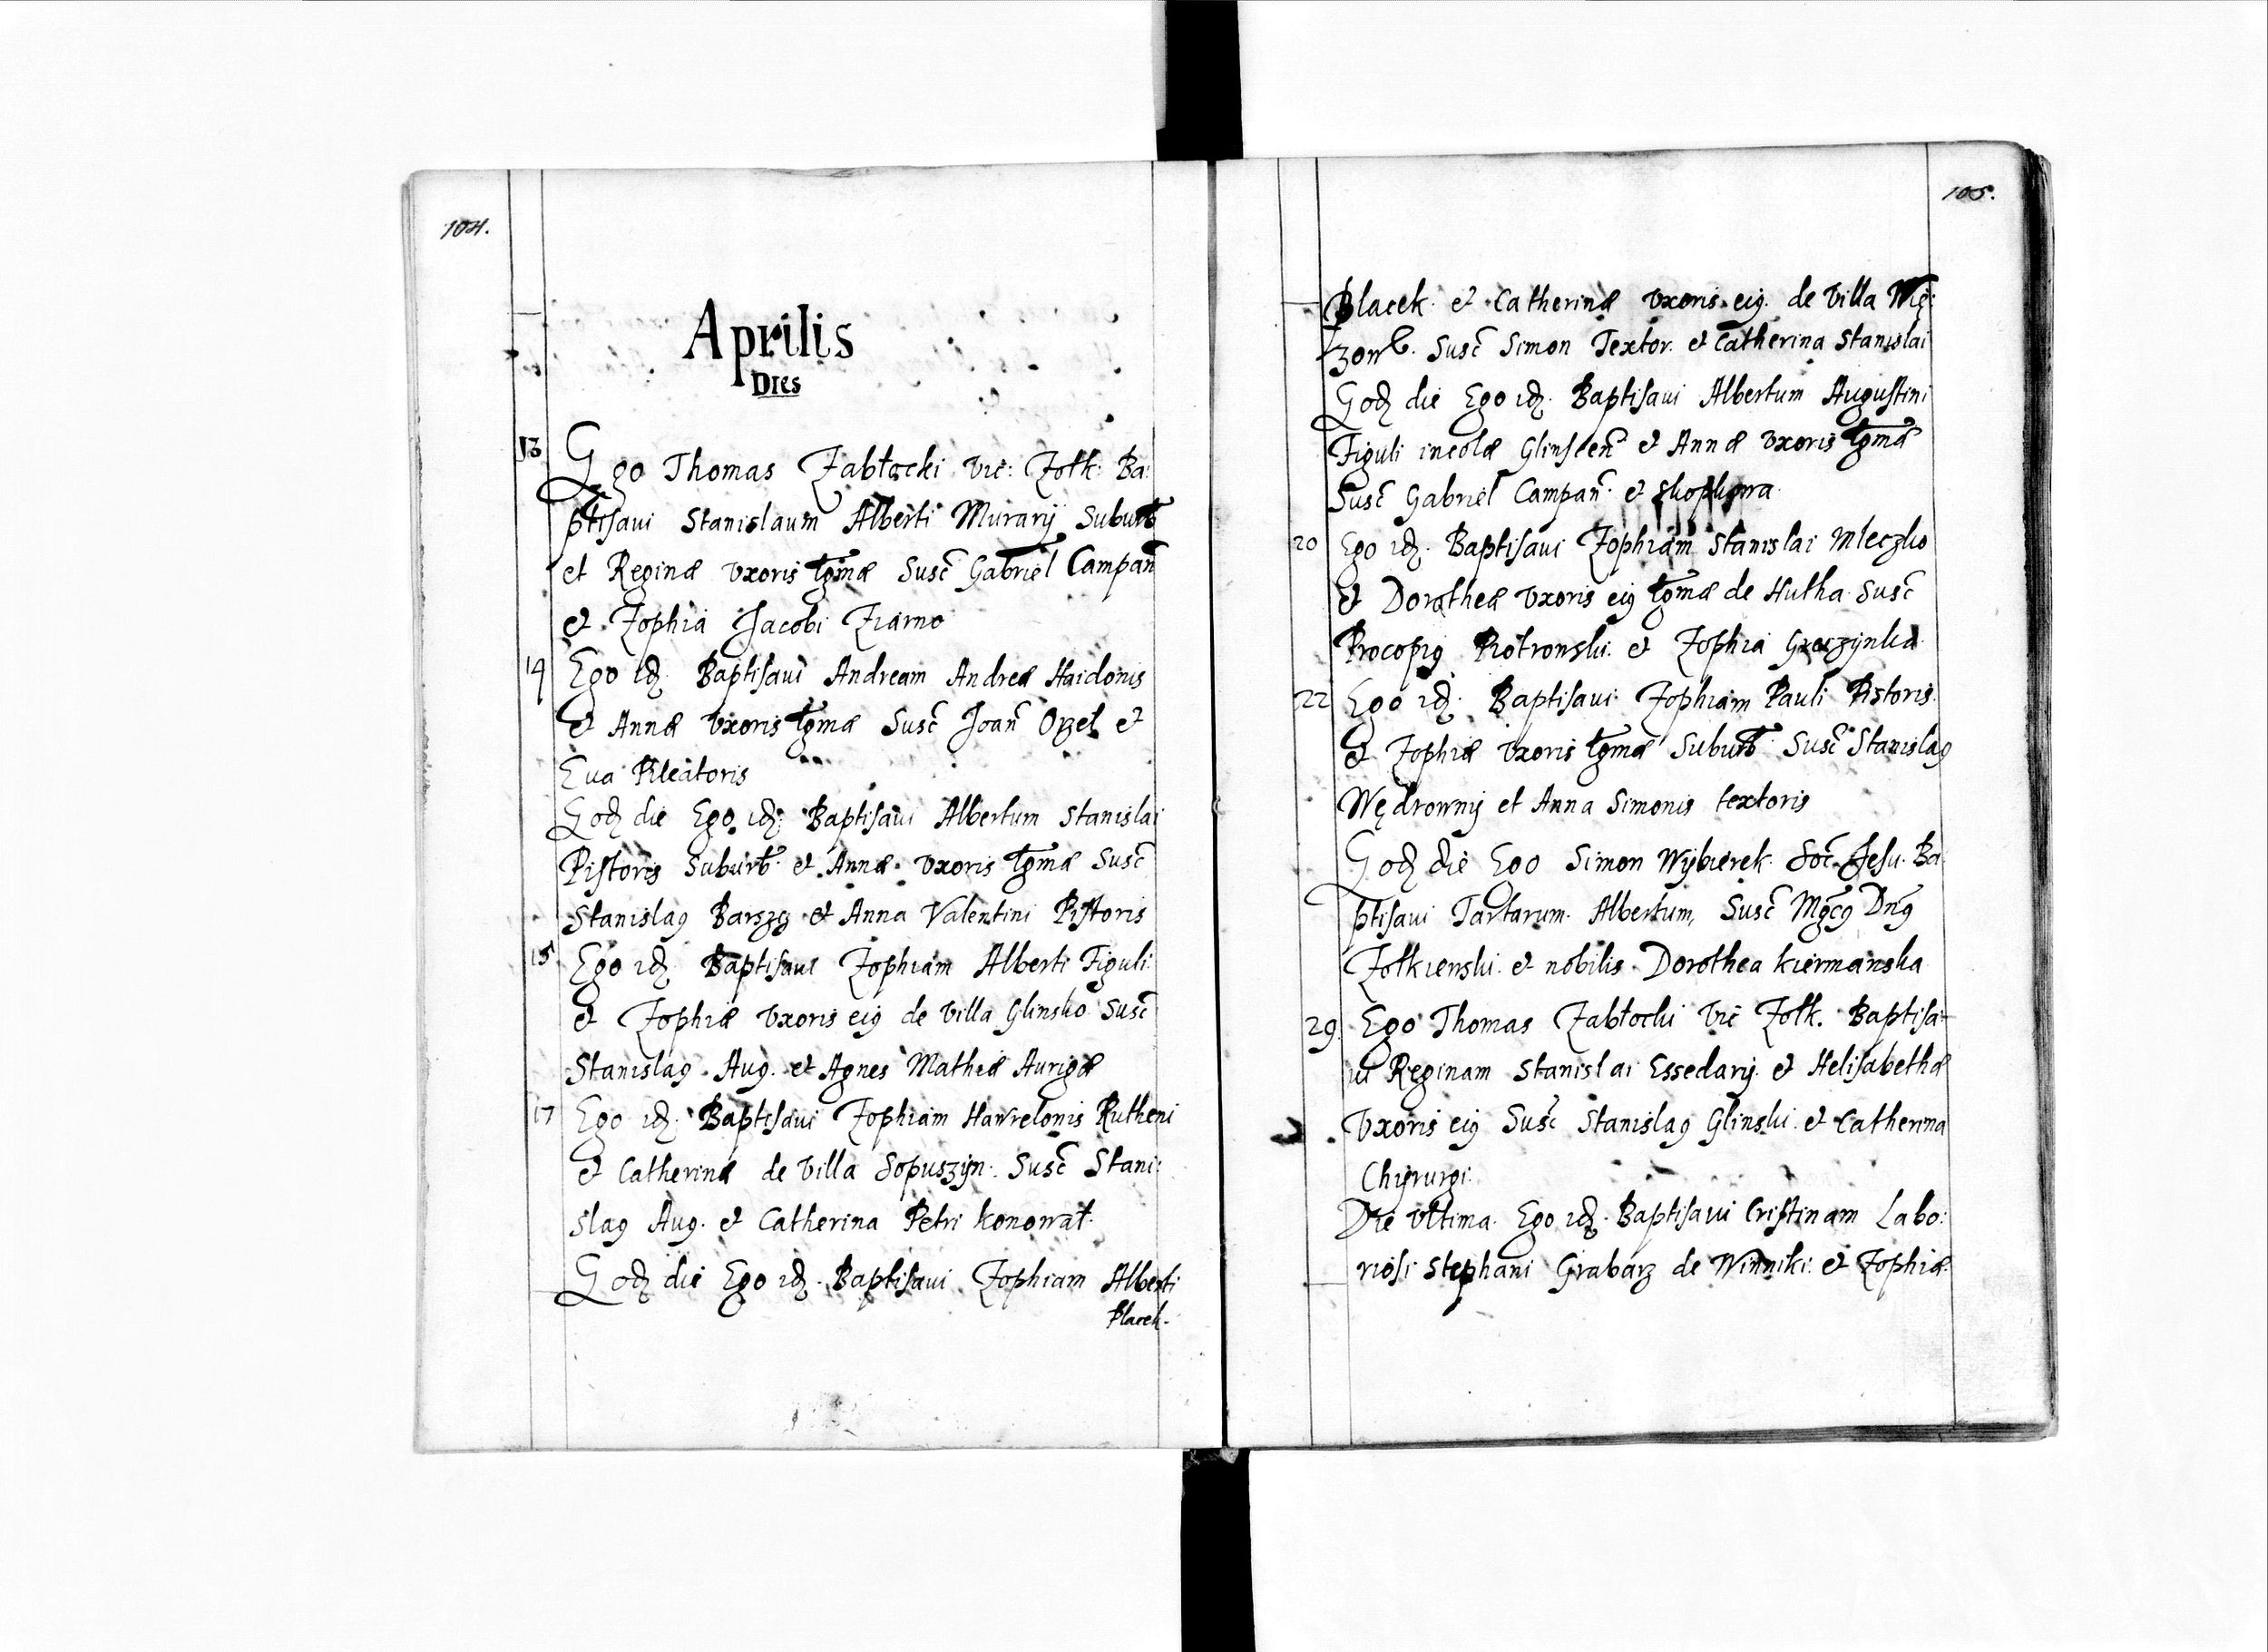 104.
Aprilis
Dies
13 Ego Thomas Zabłocki Vic: Żołk: Ba:
ptisaui Stanislaum Alberti Murarij Suburb
et Reginæ Vxoris lgmæ Susc Gabriel Campan
et Zophia Jacobi Ziarno
14 Ego idꝫ Baptisaui Andream Andreæ Haidonis
et Annæ Vxoris lgmæ Susc Joan Ozel et
Eua Pileatoris
Eodꝫ die Ego idꝫ Baptisaui Albertum Stanislai
Pistoris Suburb et Annæ Vxoris lgmæ Susc
Stanislaꝰ Barszcz et Anna Valentini Pistoris
15 Ego idꝫ Baptisaui Zophiam Alberti Figuli
et Zophiæ Vxoris eiꝰ de Villa Glinsko Susc
Stanislaꝰ Aug. et Agnes Mathiæ Aurigæ
17 Ego idꝫ Baptisaui Zophiam Hawrelonis Rutheni
et Catherinæ de Villa Sopuszyn. Susc Stani:
slaꝰ Aug. et Catherina Petri Konował.
Eodꝫ die Ego idꝫ Baptisaui Zophiam Alberti
Placek.
105.
Placek et Catherinæ Vxoris eiꝰ de Villa
Susc Simon Textor. et Catherina Stanislai
Eodꝫ die Ego idꝫ Baptisaui Albertum Augustini
Figuli incolæ Glinscen et Annæ Vxoris lgmæ
Susc Gabriel Campan. et
20 Ego idꝫ Baptisaui Zophiam Stanislai Mleczko
et Dorotheæ Vxoris eiꝰ lgmæ de Hutha Susc
Procopiꝰ Piotrowski et Zophia
22 Ego idꝫ Baptisaui Zophiam Pauli Pistoris
et Zophiæ Vxoris lgmæ Suburb Susc Stanislaꝰ
Wędrowny et Anna Simonis textoris
Eodꝫ die Ego Simon Wybierek Soc Jesu Ba
ptisaui Tartarum Albertum, Susc Mgcꝰ Dnꝰ
Żołkiewski et nobilis Dorothea Kiermanska
29 Ego Thomas Zabłocki Vic Żołk. Baptisa-
ui Reginam Stanislai Essedarij et Helisabethæ
Vxoris eiꝰ Susc Stanislaꝰ Glinski et Catherina
Chyrurgi
Die Vltima Ego idꝫ Baptisaui Cristinam Labo:
riosi Stephani Grabarz de Winniki et Zophiæ